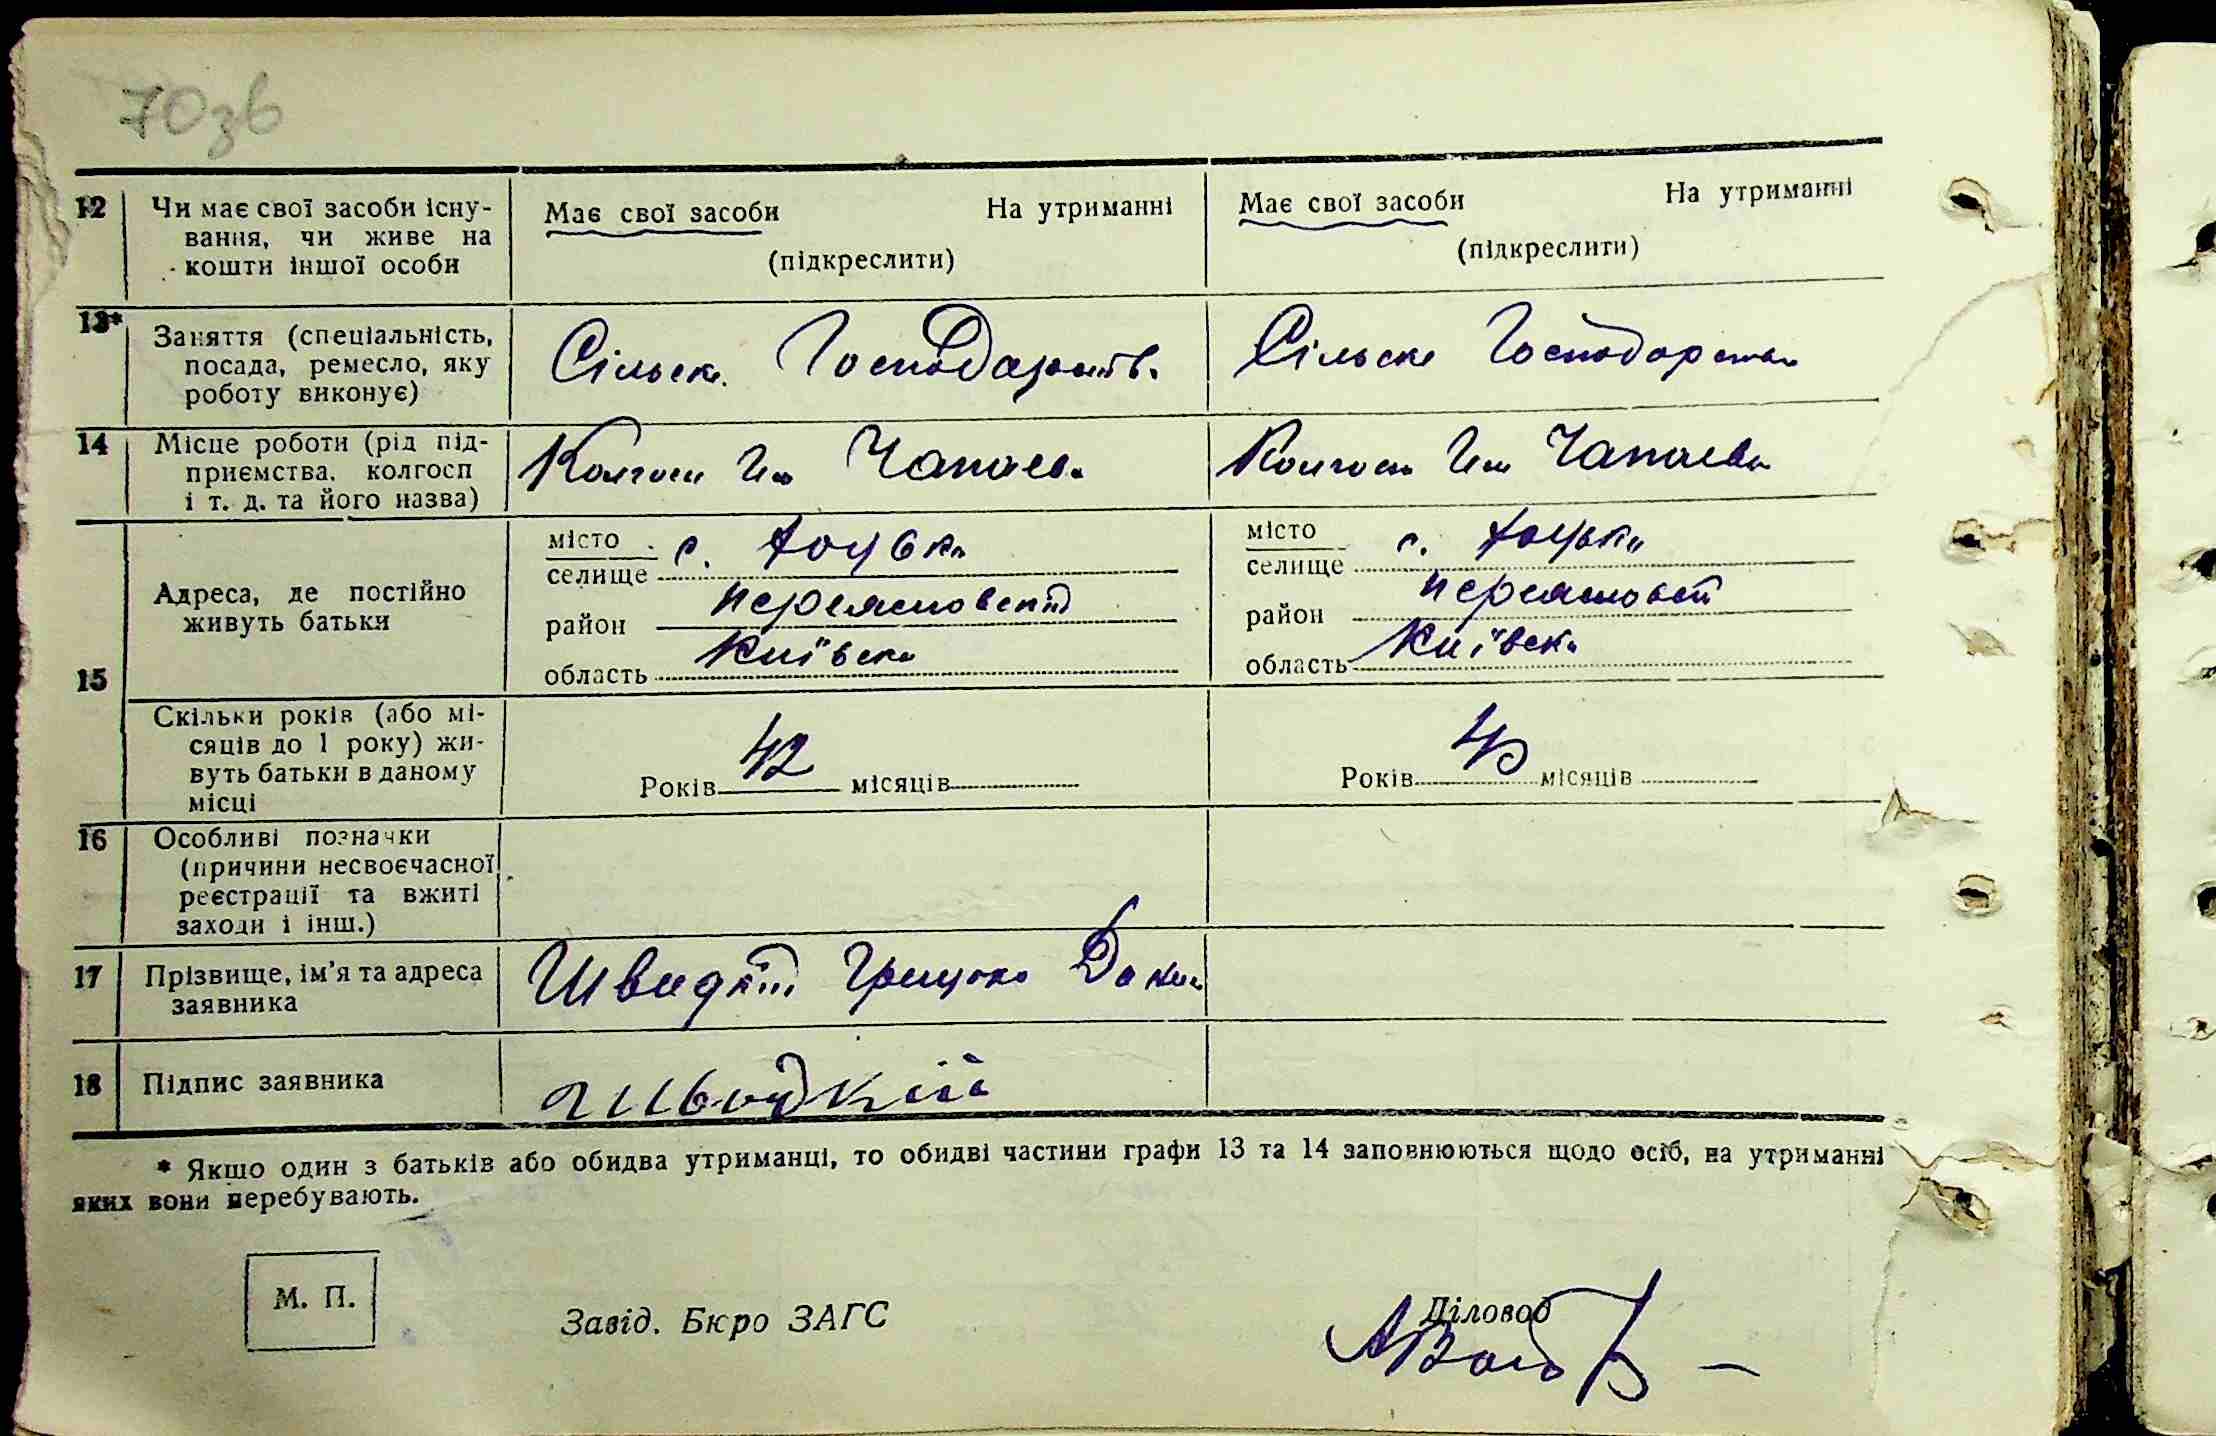 70зв
12 Чи має свої засоби існу-
вання, чи живе на
кошти іншої особи
Має свої засоби На утриманні
(підкреслити)
Має свої засоби На утриманні
(підкреслити)
13* Заняття (спеціальність,
посада, ремесло, яку
роботу виконує)
Сільск. Господарств.
Сільске Господарство
14 Місце роботи (рід під-
приємства, колгосп
і т. д. та його назва)
Колгосп Им Чапаева
Колгосп Им Чапаева
15 Адреса, де постійно
живуть батьки
місто
селище с.
район Переясловский
область Київска
місто
селище с.
район
область Київска
Скільки років (або мі-
сяців до 1 року) жи-
вуть батьки в даному
місці
Років 42 місяців
Років місяців
16 Особливі позначки
(причини несвоєчасної
реєстрації та вжиті
заходи і інш.)
17 Прізвище, ім'я та адреса
заявника
Швидкий Грицько
18 Підпис заявника
Швидкий
* Якшо один з батьків або обидва утриманці, то обидві частини графи 13 та 14 заповнюються щодо осіб, на утриманні
яких вони перебувають.
М. П.
Завід. Бюро ЗАГС
Діловод